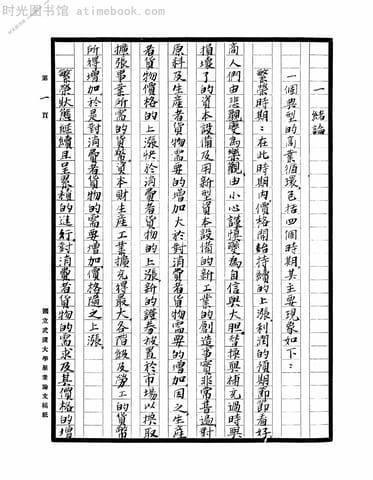 时光图书馆 - atimebook.com
一 結論
一個典型的商業循環包括四個時期其主要現象如下：
繁榮時期：在此時期內價格開始持續的上漲利潤的預期節節看好
商人們由悲觀變為樂觀由小心謹慎變為自信與大胆替換與補充過時與
損壞了的資本設備及用新型資本設備的新工業的創造事實非常普遍對
原料及生產者貨物需要的增加大於對消費者貨物需要的增加因之生產
者貨物價格的上漲快於消費者貨物的上漲新的證券放置於市場以換取
擴張事業所需的貨幣資本財生產工業擴充得最大各階級及勞工的貨幣
所得增加於是對消費者貨物的需要增加價格隨之上漲
繁榮狀態繼續且呈累積的進行對消費者貨物的需求及其價格的增
第一頁
國立武漢大學畢業論文稿紙